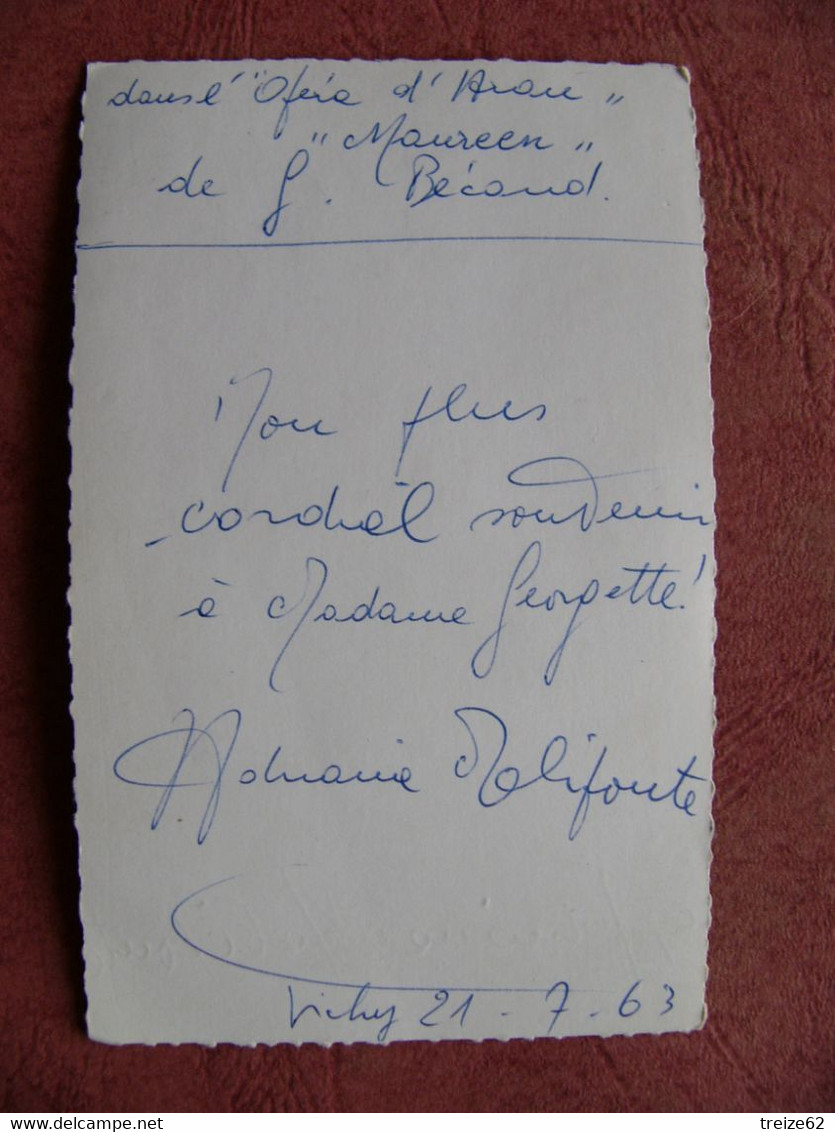 dans l' "Opéra d'Aran"
"Maureen"
de G. Bécaud.
Mon plus
cordial souvenir
à Madame Georgette!
Adriana Malifonte
Vichy 21 - 7 - 63
www.delcampe.net
treize62